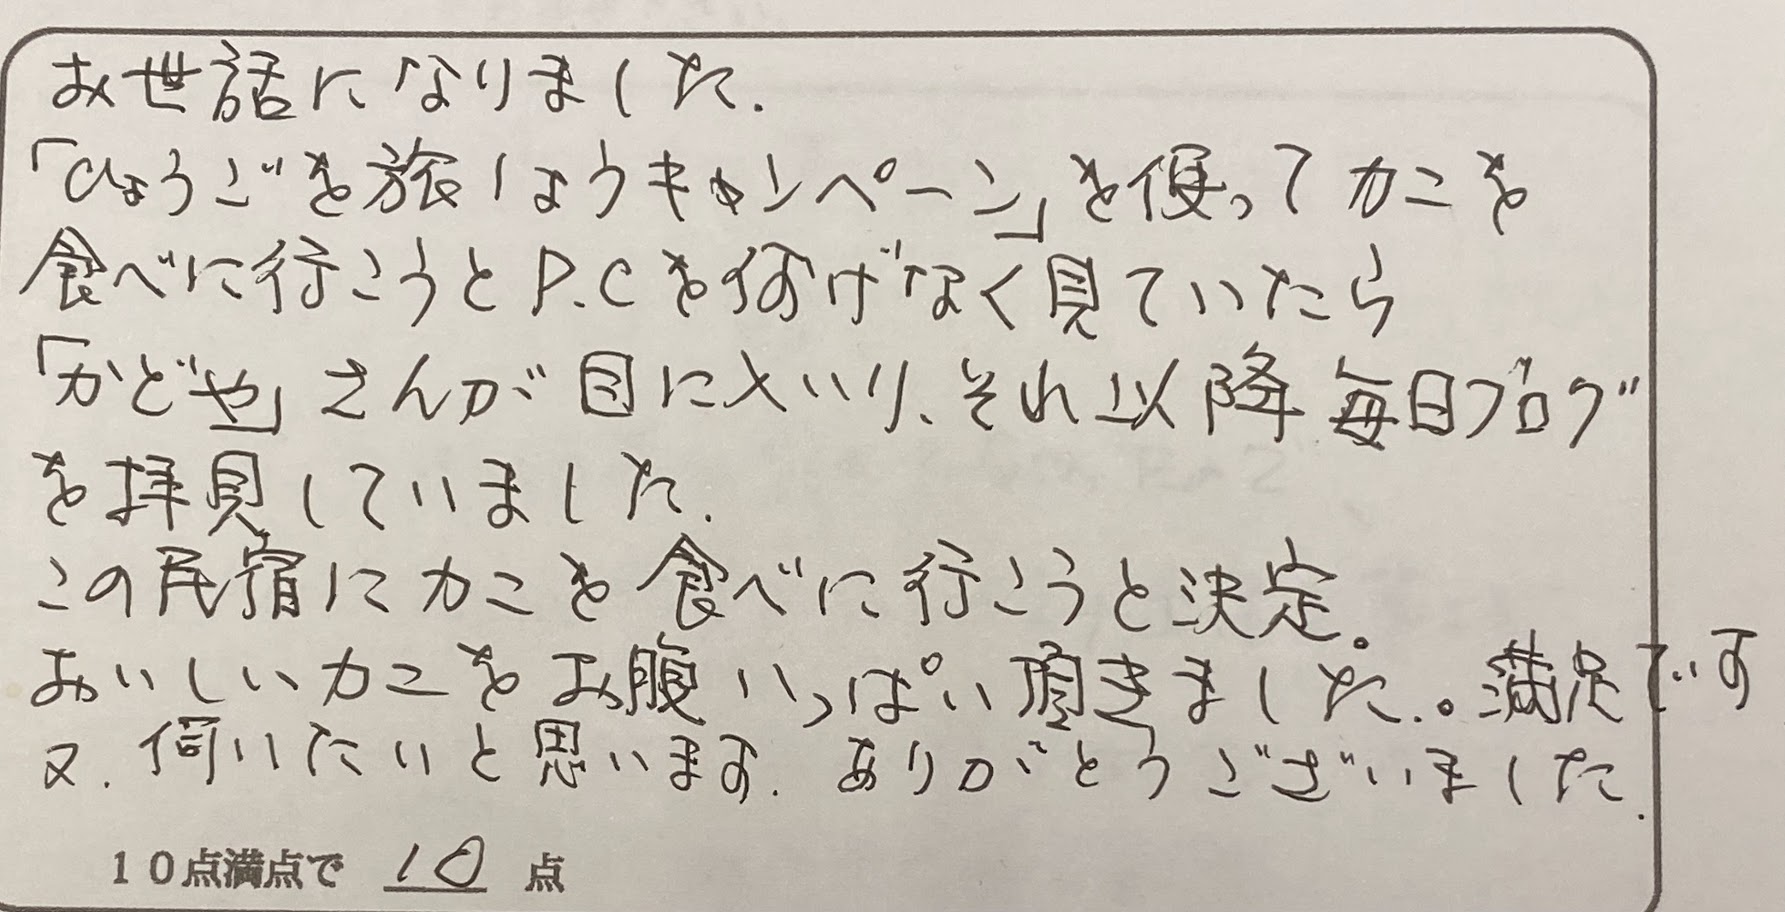 お世話になりました.
「ひょうごを旅しようキャンペーン」を使ってカニを
食べに行こうとP.Cを何げなく見ていたら
「かどや」さんが目に入いり、それ以降毎日ブログ
を拝見していました.
この民宿にカニを食べに行こうと決定。
おいしいカニをお腹いっぱい頂きました.。満足です
又.伺いたいと思います.ありがとうございました.
10点満点で 10 点